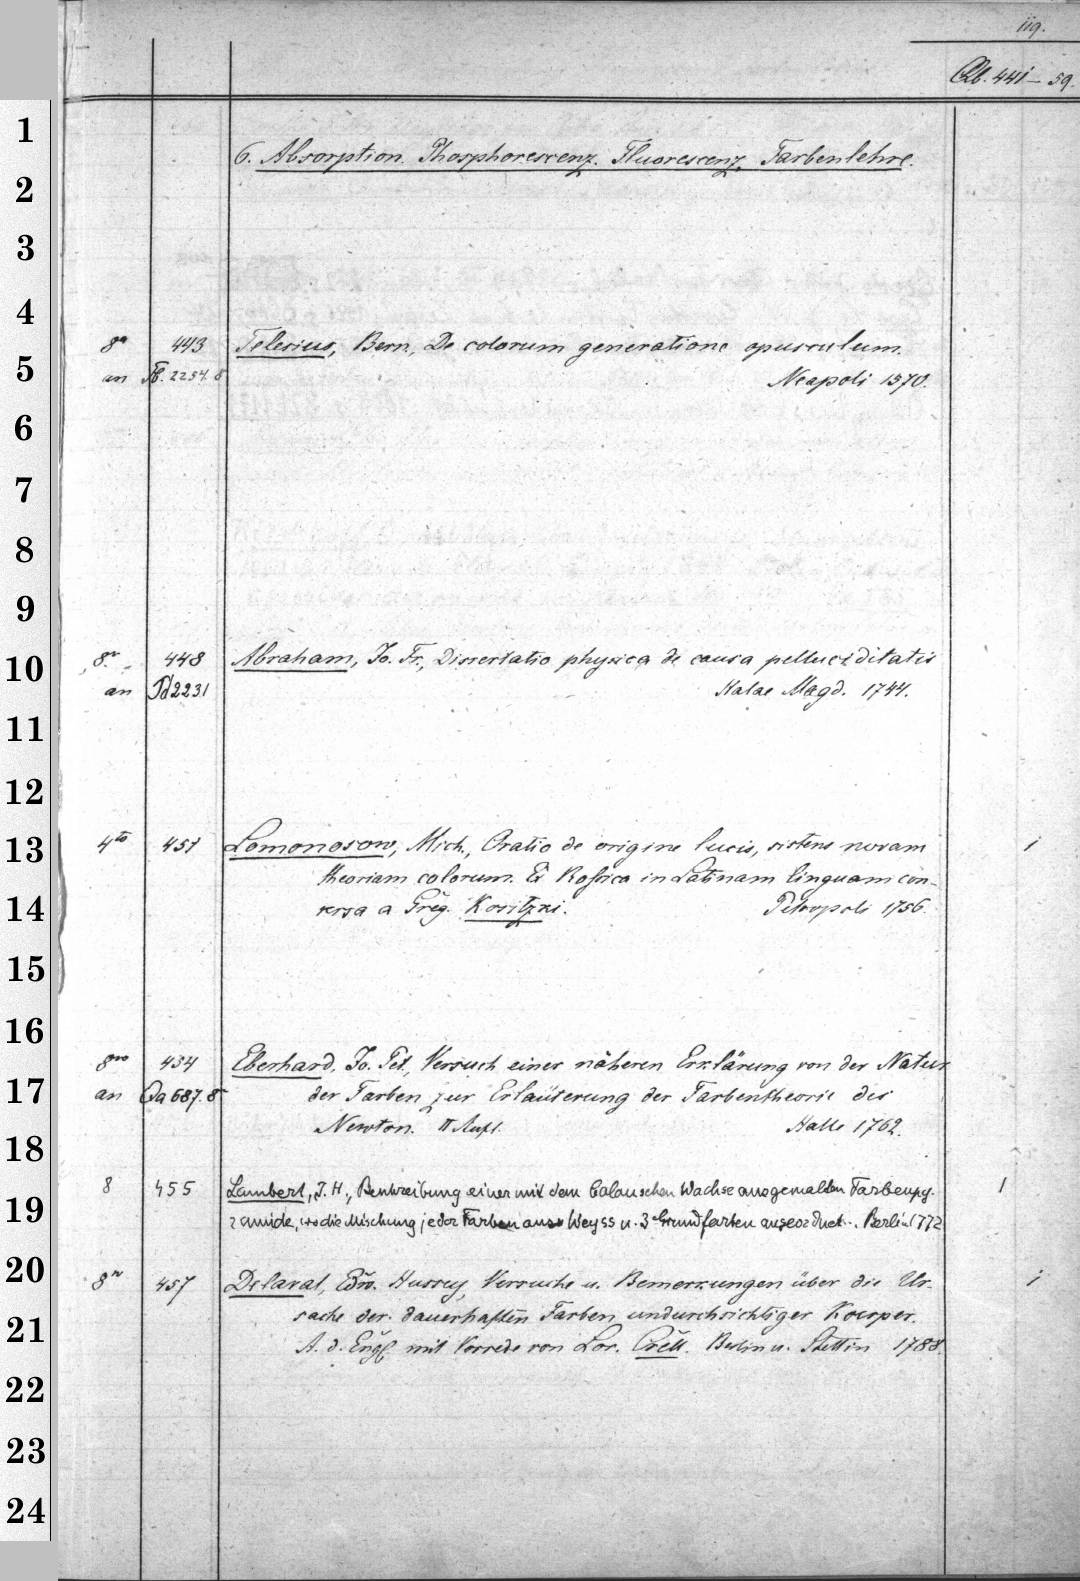 119.
Qb. 441–59.
1
6. Absorption. Phosphorescenz. Fluorescenz. Farbenlehre.
2
3
4
8° 443 Telesius, Bern., De colorum generatione opusculum.
5
an 2254. 8 Neapoli 1570.
6
7
8
9
10
8° 448 Abraham, Jo. Fr., Dissertatio physica de causa pelluciditatis
an Pd 2231 Halae Magd. 1744.
11
12
13
4to 451 Lomonosow, Mich., Oratio de origine lucis, sistens novam 1
theoriam colorum. Ex Rossica in Latinam linguam con-
14
versa a Greg. Kositzki. Petropoli 1756.
15
16
8vo 454 Eberhard, Jo. Pet., Versuch einer näheren Erklärung von der Natur
17
an Qa 687. 8 der Farben zur Erläuterung der Farbentheorie des
Newton. II Aufl. Halle 1762.
18
8 455 Lambert, J. H., Beschreibung einer mit dem Calauschen Wachse ausgemalden Farbenpy- 1
19
ramide, wo die Mischung jeder Farben aus Weyss u. 3 Grundfarben angeordnet... Berlin 1772
20
8° 457 Delaval, Edw. Hussey, Versuche u. Bemerkungen über die Ur- 1
sache der dauerhaften Farben undurchsichtiger Koerper.
21
A. d. Engl. mit Vorrede von Lor. Crell. Berlin u. Stettin 1788.
22
23
24